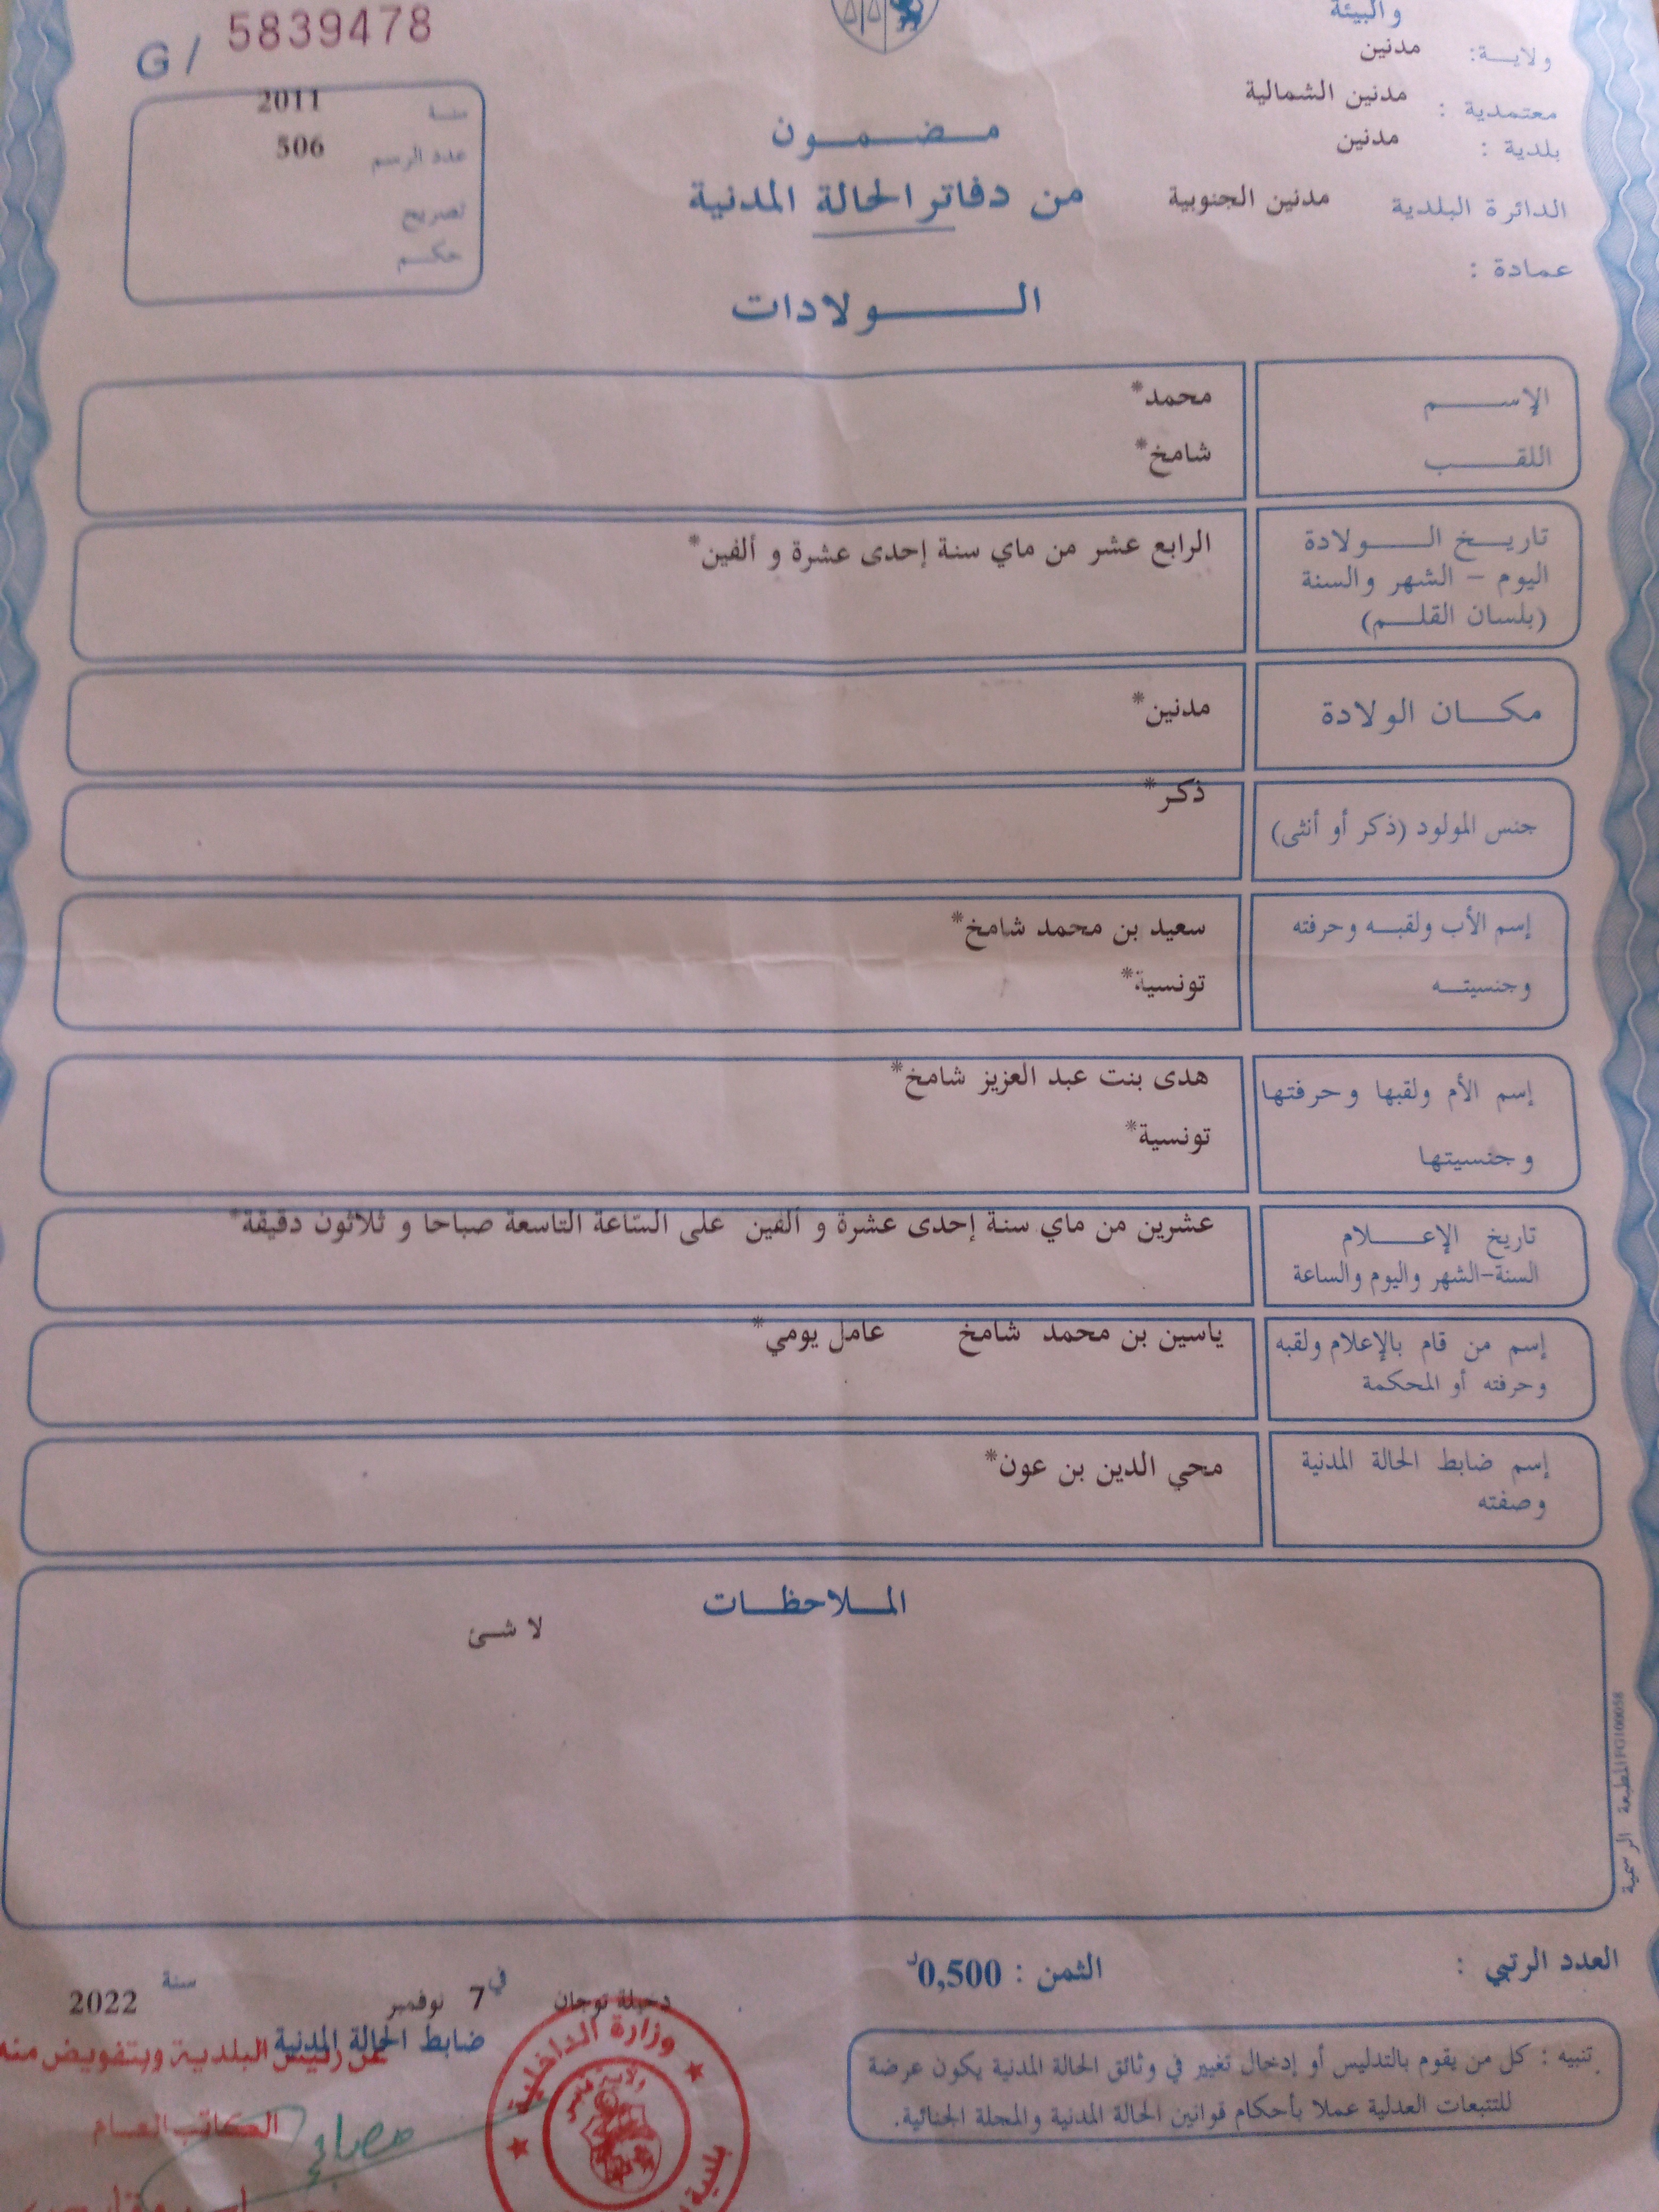 والبيئة
ولاية: مدنين
معتمدية : مدنين الشمالية
بلدية : مدنين
الدائرة البلدية مدنين الجنوبية
عمادة :
G/ 5839478
سنة 2011
عدد الرسم 506
تصريح
حكم
مضمون
من دفاتر الحالة المدنية
الولادات
الإسم محمد*
اللقب شامخ*
تاريخ الولادة الرابع عشر من ماي سنة إحدى عشرة و ألفين*
اليوم - الشهر والسنة
(بلسان القلم)
مكان الولادة مدنين*
جنس المولود (ذكر أو أنثى) ذكر*
إسم الأب ولقبه وحرفته سعيد بن محمد شامخ*
وجنسيته تونسية*
إسم الأم ولقبها وحرفتها هدى بنت عبد العزيز شامخ*
وجنسيتها تونسية*
تاريخ الإعلام عشرين من ماي سنة إحدى عشرة و ألفين على الساعة التاسعة صباحا و ثلاثون دقيقة*
السنة-الشهر واليوم والساعة
إسم من قام بالإعلام ولقبه ياسين بن محمد شامخ عامل يومي*
وحرفته أو المحكمة
إسم ضابط الحالة المدنية محي الدين بن عون*
وصفته
الملاحظات
لا شئ
المطبعة الرسمية PG100058
العدد الرتبي :
الثمن : 0,500د
دخيلة توجان في 7 نوفمبر سنة 2022
ضابط الحالة المدنية
عن رئيس البلدية وبتفويض منه
الكاتب العام
وزارة الداخلية
ولاية مدنين
بلدية
تنبيه : كل من يقوم بالتدليس أو إدخال تغيير في وثائق الحالة المدنية يكون عرضة
للتتبعات العدلية عملا بأحكام قوانين الحالة المدنية والمجلة الجنائية.